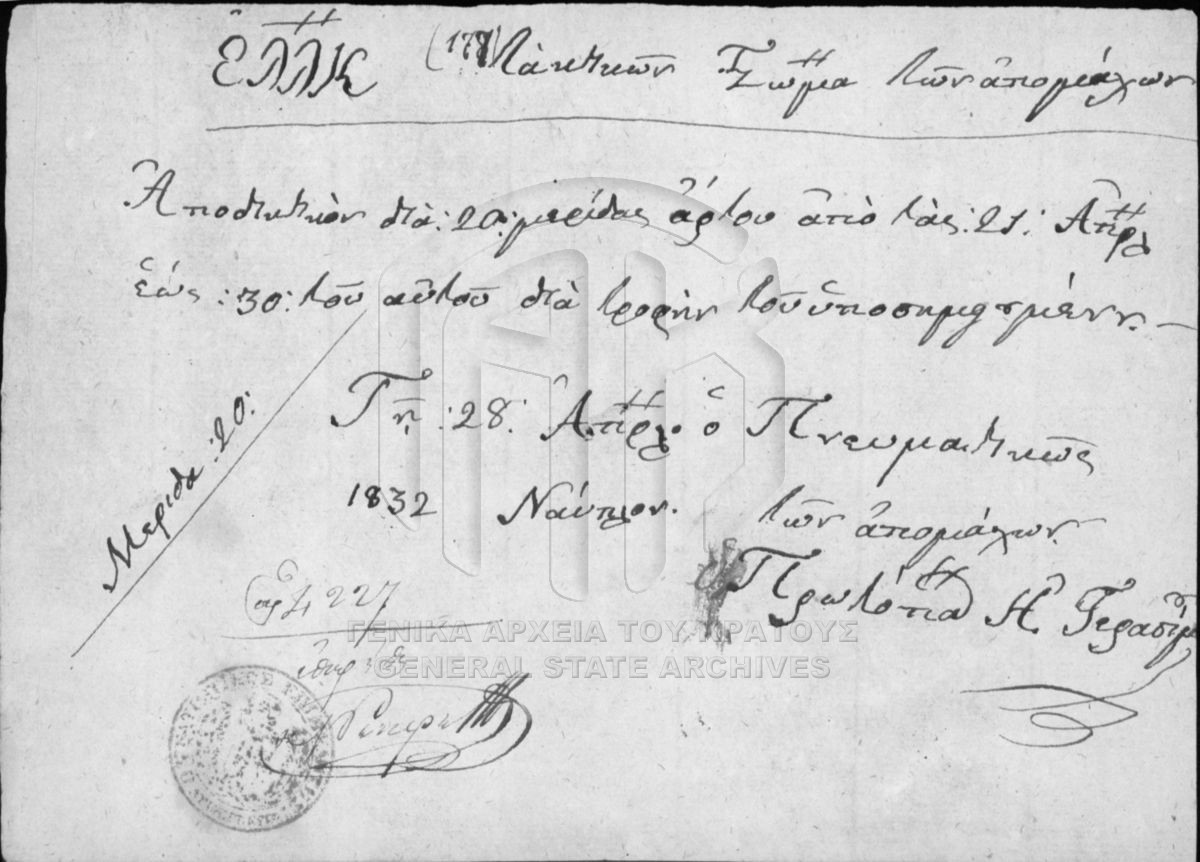 Ἑλλκ (178) Τακτικῶν Σῶμα τῶν ἀπομάχων
Ἀποδικτικὸν διὰ :20: μερίδας ἄρτου ἀπὸ τὰς :21: Ἀπρλ
ἑώς :30: τοῦ αὐτοῦ διὰ τροφὴν τοῦ ὑποσημ
Μεριδα :20:
Τῃ :28: Ἀπρλ ὁ Πνευματικὸς
1832 Ναύπλιον. τῶν ἀπομάχων
Πρωτόπα Γερασίμ
227
ΓΕΝΙΚΑ ΑΡΧΕΙΑ ΤΟΥ ΚΡΑΤΟΥΣ
GENERAL STATE ARCHIVES